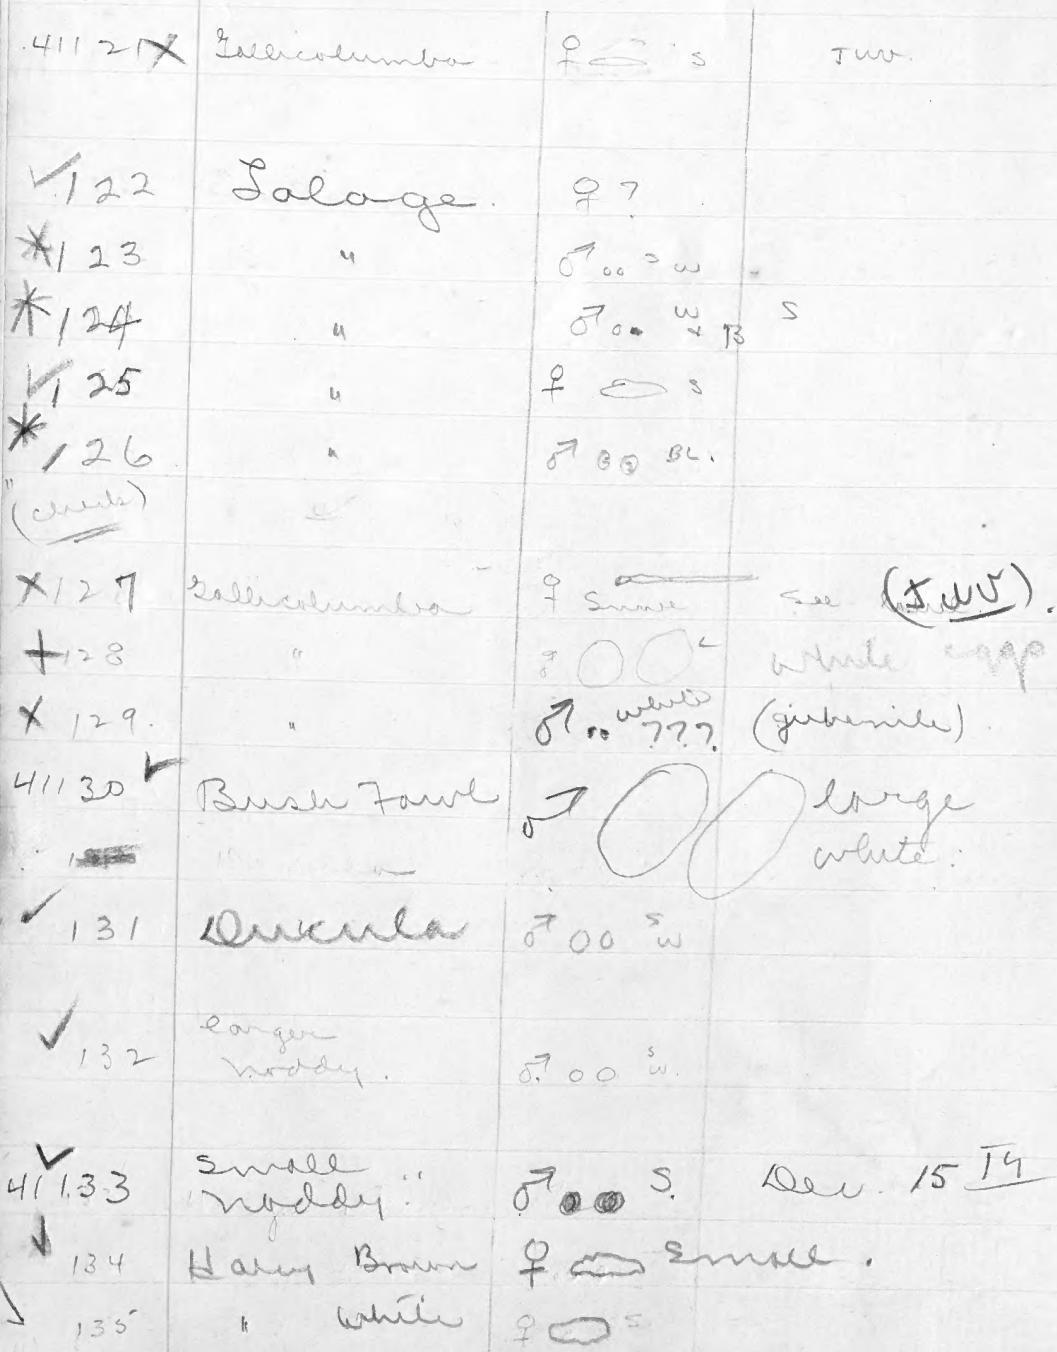 41121X Gallicolumba ♀ S JUV.
✓122 Lalage. ♀ ?
*123 " ♂ S W
*124 " ♂ W + B S
✓125 " ♀ S
*126 " ♂ BL.
" (check)
X127 Gallicolumba ♀ Small See (JUV).
+128 " L white eggs
X 129. " ♂ white ???. (jubenile)
41130 ✓ Bush Fowl ♂ large
white.
✓ 131 Dukula ♂ S W
✓ 132 larger
noddy. ♂ S W.
✓
41133 small
noddy. " ♂ S. Dec. 15 TH
✓ 134 Harry Brown ♀ Small.
135 " White ♀ S